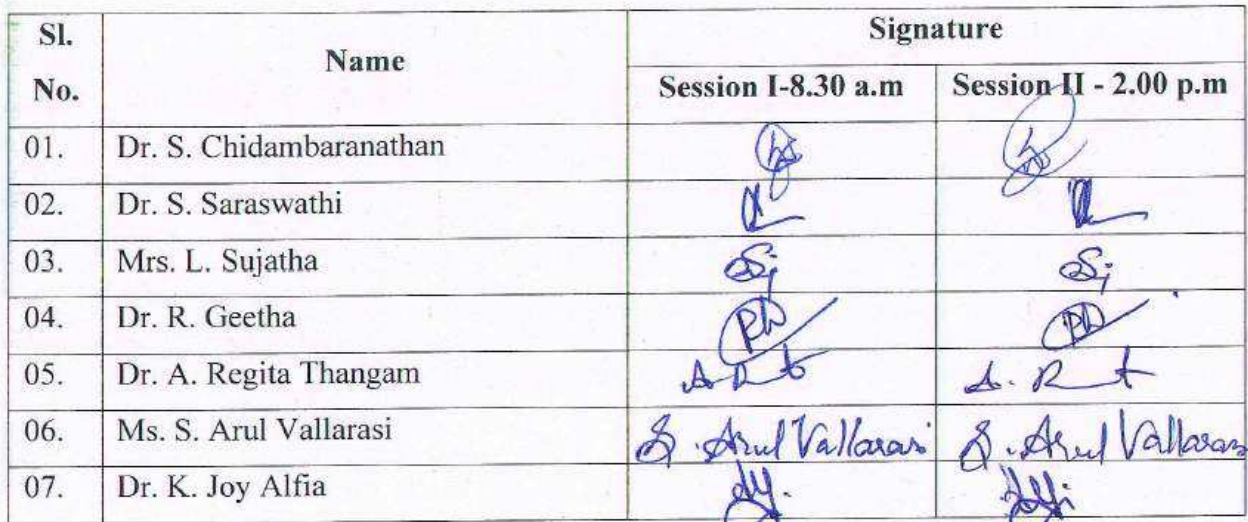 Sl. No. Name Signature
Session I-8.30 a.m Session II - 2.00 p.m
01. Dr. S. Chidambaranathan
02. Dr. S. Saraswathi
03. Mrs. L. Sujatha
04. Dr. R. Geetha
05. Dr. A. Regita Thangam
06. Ms. S. Arul Vallarasi S. Arul Vallarasi S. Arul Vallaras
07. Dr. K. Joy Alfia